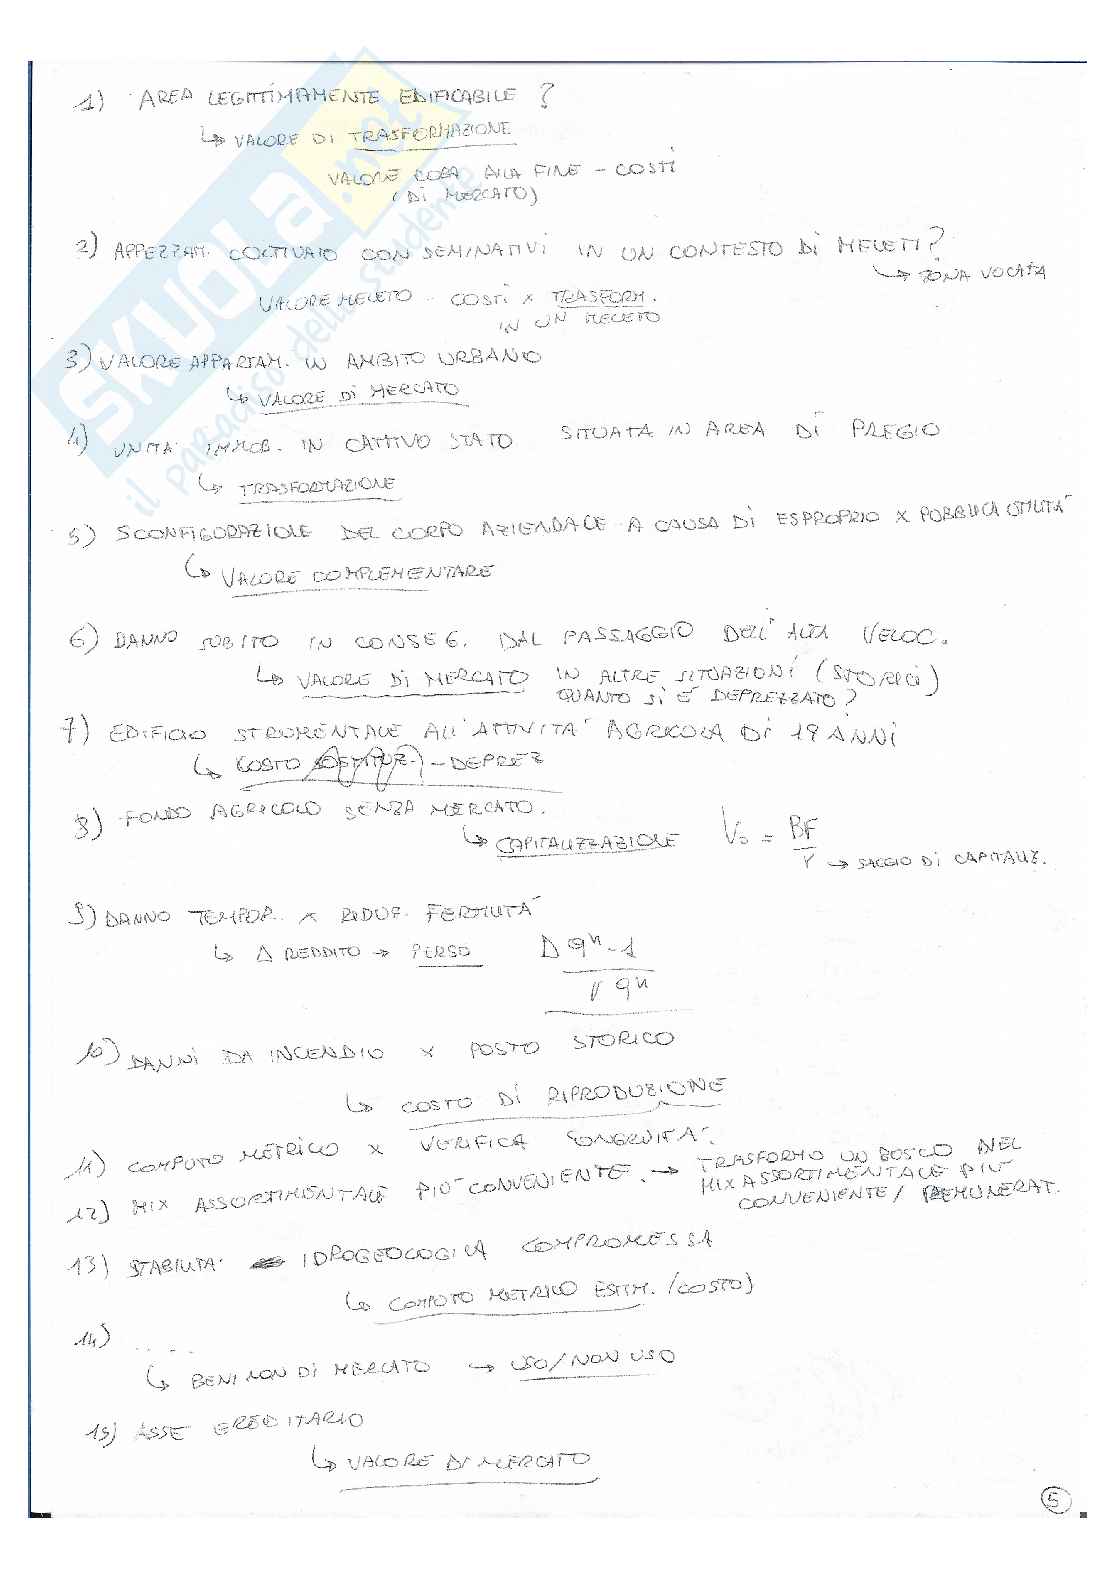 1) AREA LEGITTIMAMENTE EDIFICABILE ?
↳ VALORE DI TRASFORMAZIONE
VALORE COSA ALLA FINE - COSTI
(DI MERCATO)
2) APPEZZAM. COLTIVATO CON SEMINATIVI IN UN CONTESTO DI MELETI?
↳ ZONA VOCATA
VALORE MELETO - COSTI x TRASFORM.
IN UN MELETO
3) VALORE APPARTAM. IN AMBITO URBANO
↳ VALORE DI MERCATO
4) UNITA' IMMOB. IN CATTIVO STATO SITUATA IN AREA DI PREGIO
↳ TRASFORMAZIONE
5) SCONFIGURAZIONE DEL CORPO AZIENDALE A CAUSA DI ESPROPRIO x PUBBLICA UTILITA'
↳ VALORE COMPLEMENTARE
6) DANNO SUBITO IN CONSEG. DAL PASSAGGIO DELL'ALTA VELOC.
↳ VALORE DI MERCATO IN ALTRE SITUAZIONI (STORICI)
QUANTO SI E' DEPREZZATO?
7) EDIFICIO STRUMENTALE ALL'ATTIVITA' AGRICOLA DI 19 ANNI
↳ COSTO - DEPREZ
8) FONDO AGRICOLO SENZA MERCATO.
↳ CAPITALIZZAZIONE V₀ = BF / r → SAGGIO DI CAPITALIZ.
9) DANNO TEMPOR. x RIDUZ. FERTILITA'
↳ Δ REDDITO → PERSO D qⁿ-1 / r qⁿ
10) DANNI DA INCENDIO x POSTO STORICO
↳ COSTO DI RIPRODUZIONE
11) COMPUTO METRICO x VERIFICA CONGRUITA'.
12) MIX ASSORTIMENTALE PIU' CONVENIENTE. → TRASFORMO UN BOSCO NEL
MIX ASSORTIMENTALE PIU'
CONVENIENTE / REMUNERAT.
13) STABILITA' IDROGEOLOGICA COMPROMESSA
↳ COMPUTO METRICO ESTIM. (COSTO)
14) .....
↳ BENI NON DI MERCATO → USO/NON USO
15) ASSE EREDITARIO
↳ VALORE DI MERCATO
5
SKUOLA.net
il paradiso dello studente